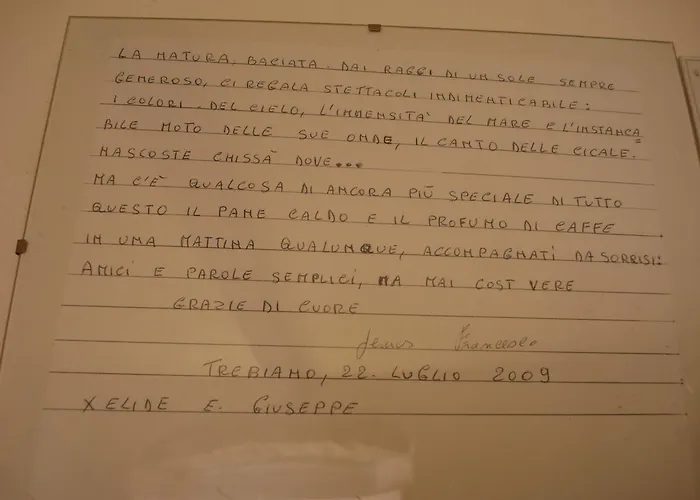 LA NATURA, BACIATA DAI RAGGI DI UN SOLE SEMPRE
GENEROSO, CI REGALA STETTACOLI INDIMENTICABILE:
I COLORI DEL CIELO, L'IMMENSITA' DEL MARE E L'INSTANCA=
BILE MOTO DELLE SUE ONDE, IL CANTO DELLE CICALE.
NASCOSTE CHISSÀ DOVE...
MA C'È QUALCOSA DI ANCORA PIÙ SPECIALE DI TUTTO
QUESTO IL PANE CALDO E IL PROFUMO DI CAFFE
IN UNA MATTINA QUALUNQUE, ACCOMPAGNATI DA SORRISI:
AMICI E PAROLE SEMPLICI, MA MAI COSÌ VERE
GRAZIE DI CUORE
Francesco
TREBIANO, 22. LUGLIO 2009
X ELIDE E. GIUSEPPE